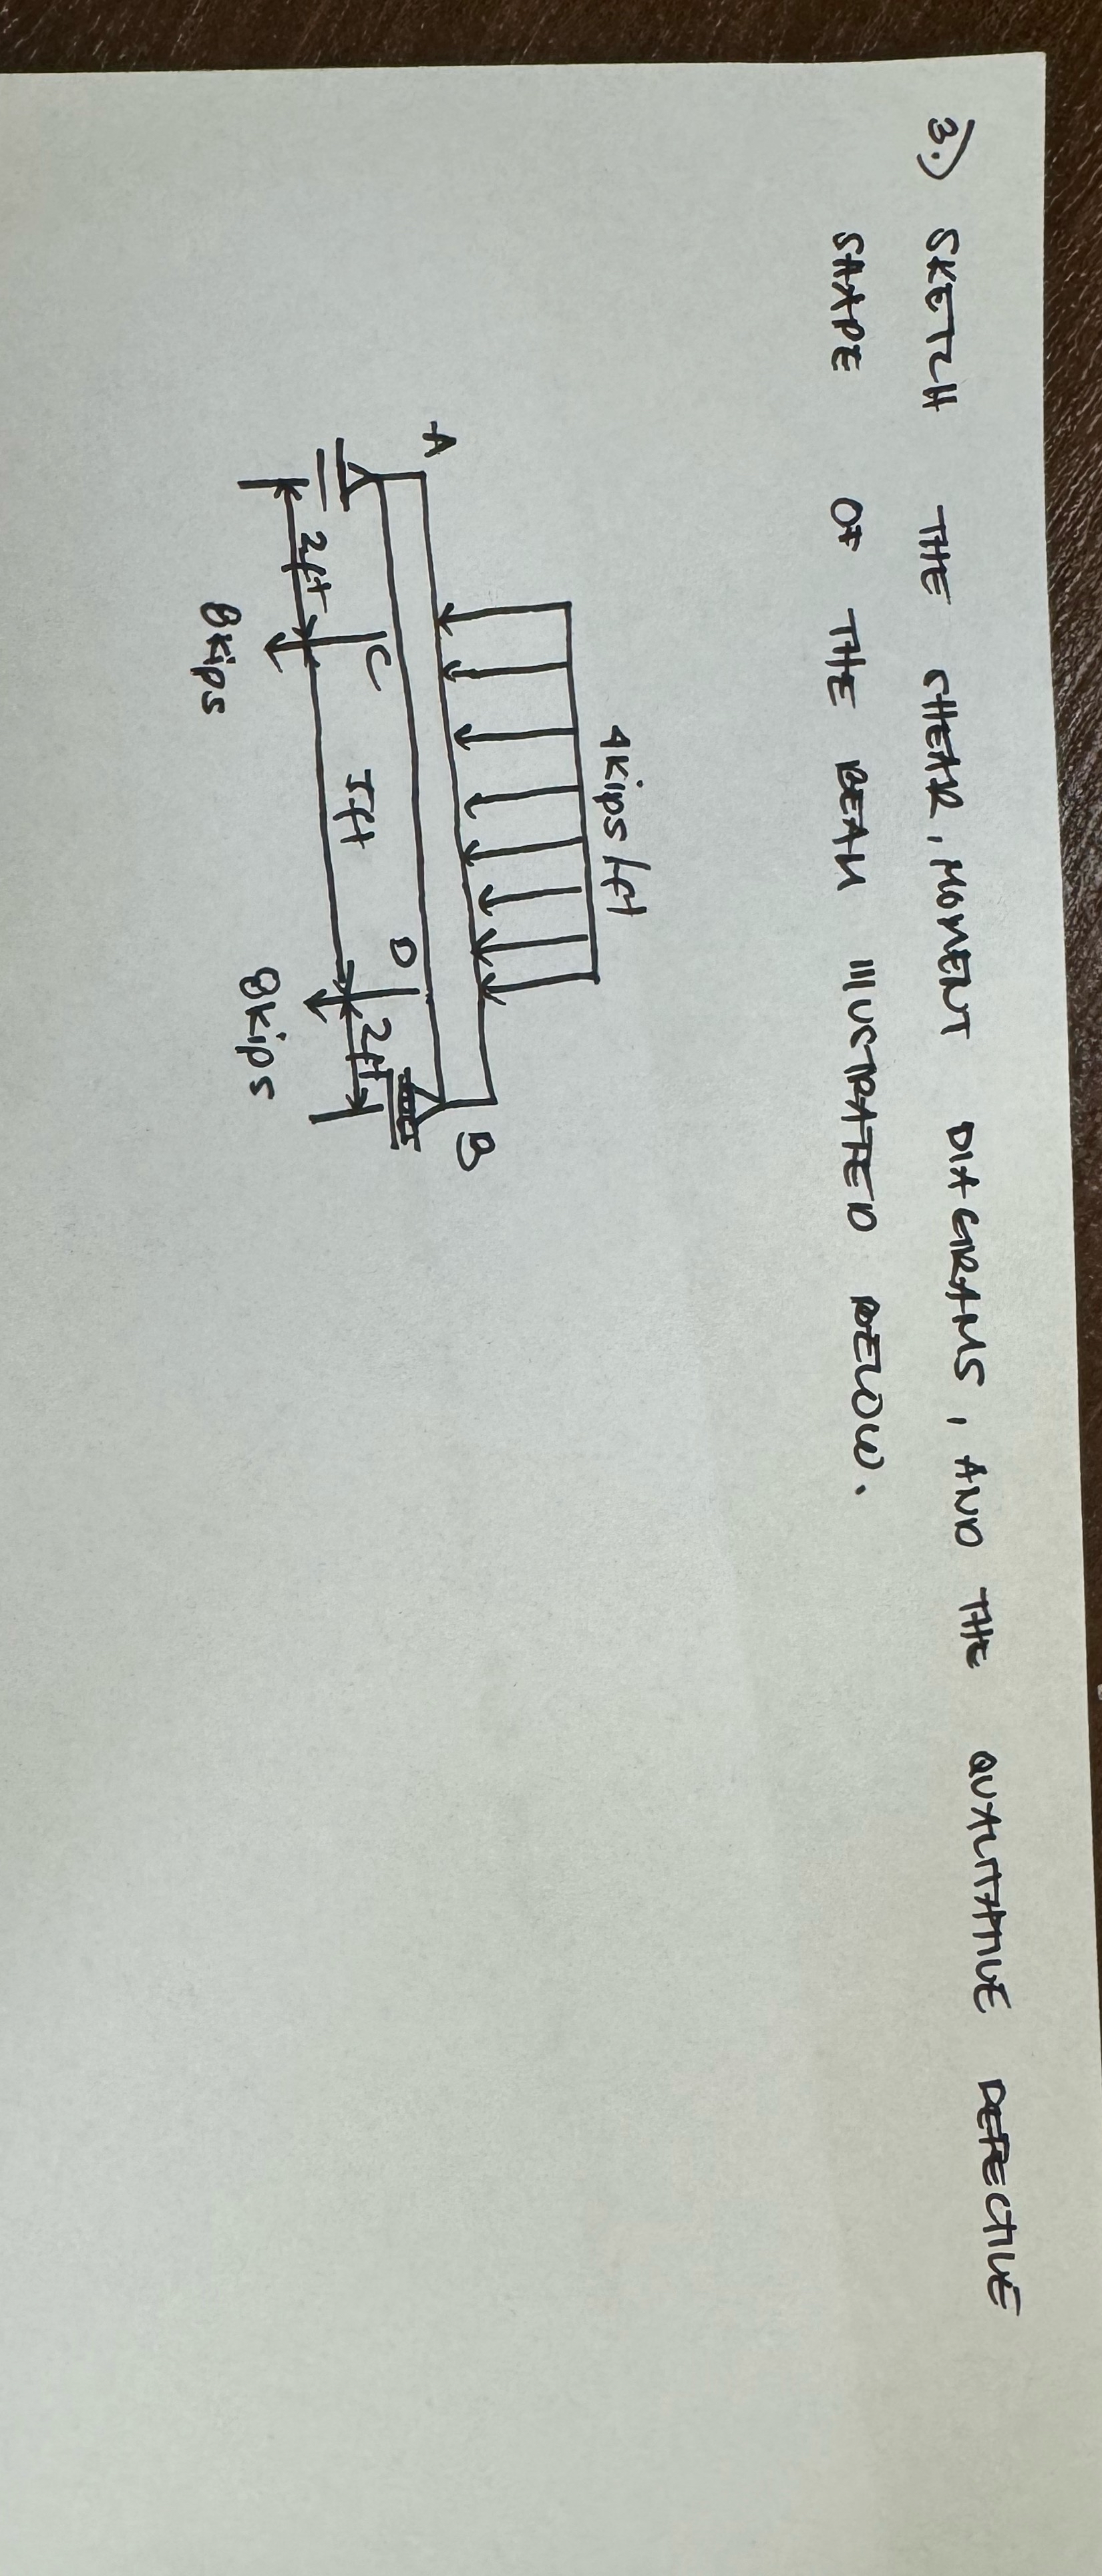 3.) SKETCH THE SHEAR, MOMENT DIAGRAMS, AND THE QUALITATIVE DEFECTIVE
SHAPE OF THE BEAM ILLUSTRATED BELOW.
4 kips/ft
A
B
C
D
2ft
5ft
2ft
8 kips
8 kips